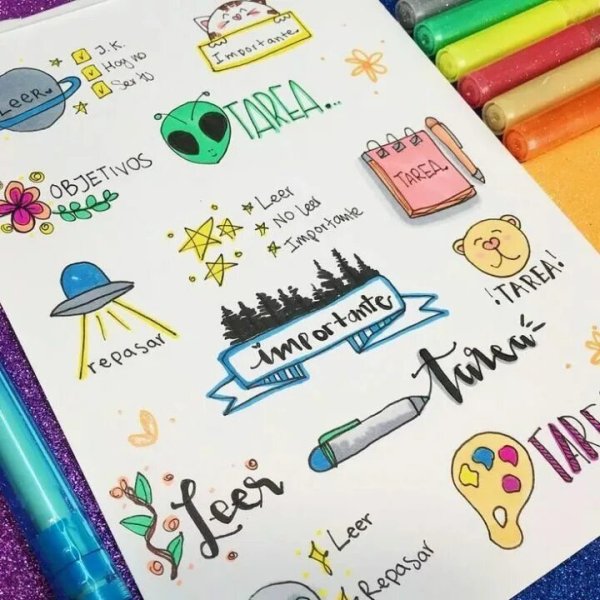 J.K.
Hoy no
Ser to
LEER
Importante
TAREA...
TAREA
OBJETIVOS
Leer
No leer
Importante
¡TAREA!
repasar
importante
tarea
TAREA
Leer
Leer
Repasar